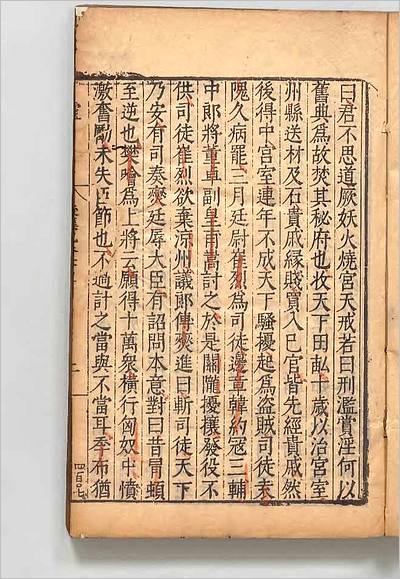 曰君不思道厥妖火燒宮天戒若曰刑濫賞淫何以
舊典爲故焚其秘府也收天下田畆十歲以治宮室
州縣送材及石貴戚緣賤買入己官皆先經貴戚然
後得中宮室連年不成天下騷擾起爲盜賊司徒袁
隗久病罷三月廷尉崔烈爲司徒邊章韓約冦三輔
中郎將董卓副皇甫嵩討之於是關隴擾攘發役不
供司徒崔烈欲棄涼州議郎傅爕進曰斬司徒天下
乃安有司奏爕廷辱大臣有詔問本意對曰昔冒頓
至逆也樊噲爲上將云願得十萬衆橫行匈奴中憤
激奮勵未失臣節也不過計之當與不當耳季布猶